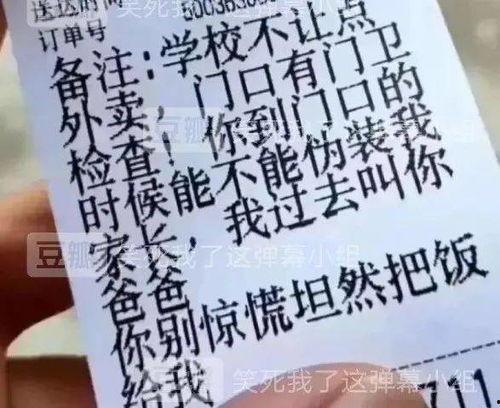 送达时间
订单号
备注：学校不让点
外卖，门口有门卫
检查！你到门口的
时候能不能伪装我
家长，我过去叫你
爸爸
你别惊慌坦然把饭
给我
豆瓣 笑死我了这弹幕小组
豆瓣 笑死我了这弹幕小组
豆瓣 笑死我了这弹幕小组